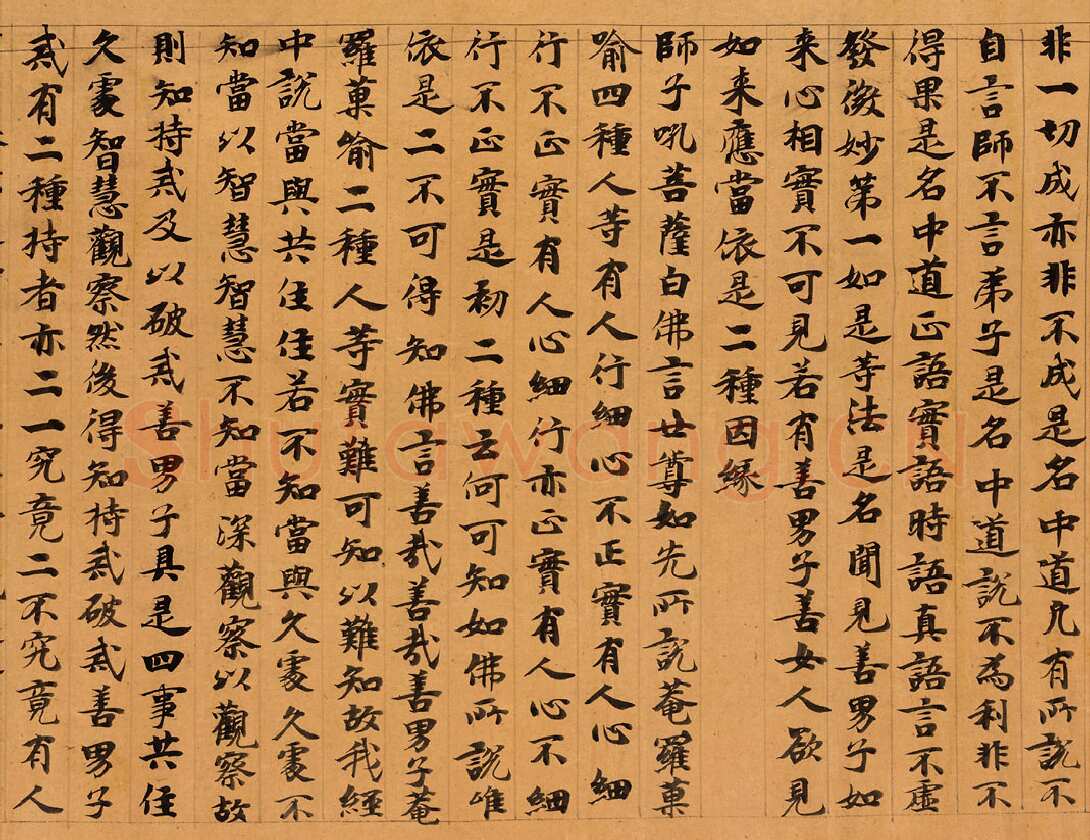 非一切成亦非不成是名中道凡有所說不
自言師不言弟子是名中道說不為利非不
得果是名中道正語實語時語真語言不虛
發微妙第一如是等法是名聞見善男子如
来心相實不可見若有善男子善女人欲見
如来應當依是二種因緣
師子吼菩薩白佛言世尊如先所說菴羅菓
喻四種人等有人行細心不正實有人心細
行不正實有人心細行亦正實有人心不細
行不正實是初二種云何可知如佛所說唯
依是二不可得知佛言善哉善哉善男子菴
羅菓喻二種人等實難可知以難知故我經
中說當與共住住若不知當與久處久處不
知當以智慧智慧不知當深觀察以觀察故
則知持戒及以破戒善男子具是四事共住
久處智慧觀察然後得知持戒破戒善男子
戒有二種持者亦二一究竟二不究竟有人
Shufawang.CN